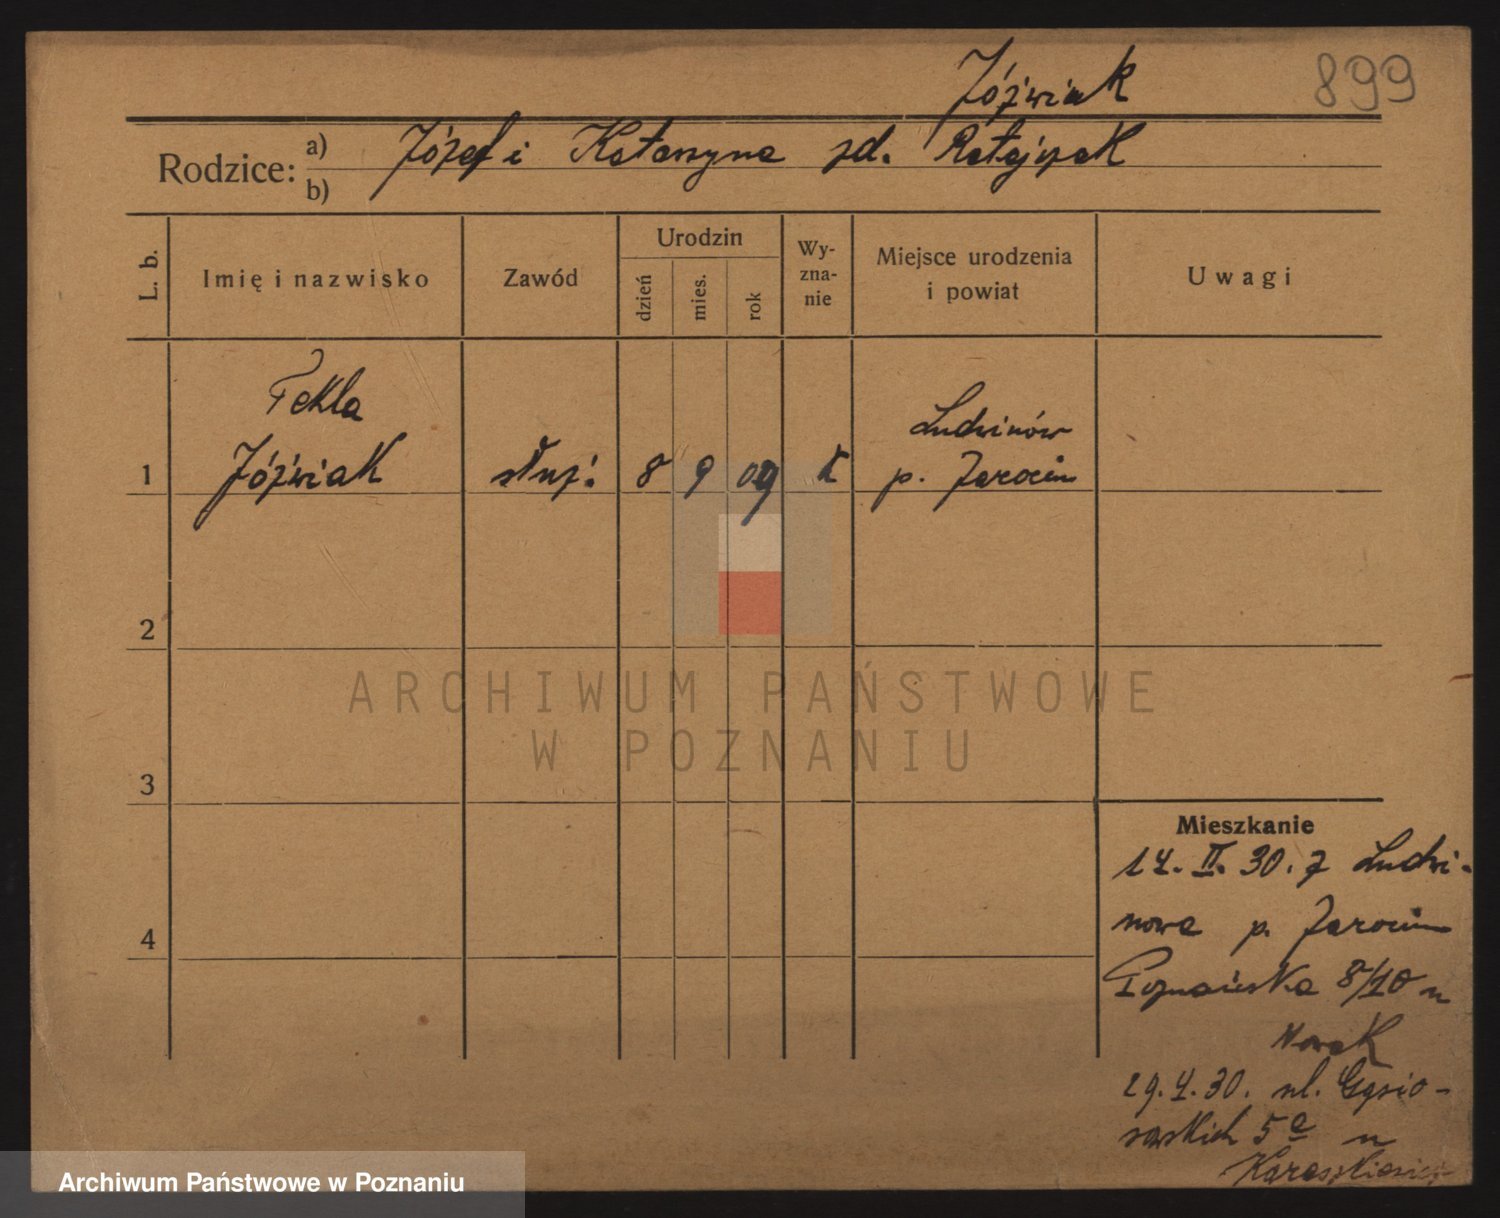 Jóźwiak
899
Rodzice: a) Józef i Katarzyna zd. Ratajczak
b)
L. b.
Imię i nazwisko
Zawód
Urodzin
dzień
mies.
rok
Wy-
zna-
nie
Miejsce urodzenia
i powiat
Uwagi
Tekla
1 Jóźwiak służ. 8 9 09 k
Ludwinów
p. Jarocin
2
3
4
ARCHIWUM PAŃSTWOWE
W POZNANIU
Mieszkanie
14. II. 30. z Ludwi-
nowa p. Jarocin
Poznańska 8/10 u
Nowak
29. 4. 30. ul.
5a u
Archiwum Państwowe w Poznaniu